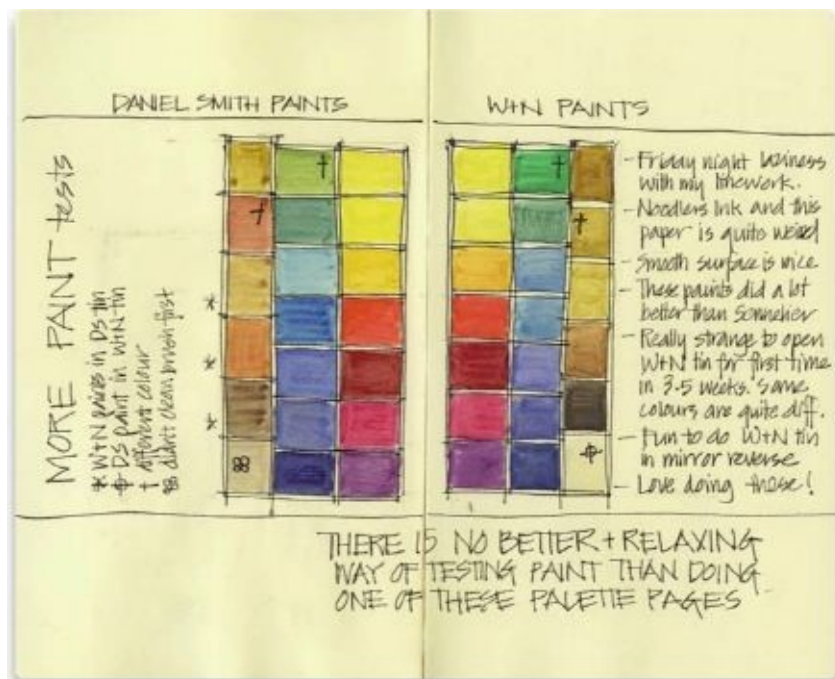 DANIEL SMITH PAINTS
W+N PAINTS
MORE PAINT tests
* W+N paints in DS tin
ϕ DS paint in W+N tin
† different colour
⌘ didn't clean brush first
- Friday night laziness
with my linework.
- Noodlers Ink and this
paper is quite weird
- Smooth surface is nice
- These paints did a lot
better than Sennelier
- Really strange to open
W+N tin for first time
in 3.5 weeks. Some
colours are quite diff.
- Fun to do W+N tin
in mirror reverse
- Love doing these!
THERE IS NO BETTER + RELAXING
WAY OF TESTING PAINT THAN DOING
ONE OF THESE PALETTE PAGES